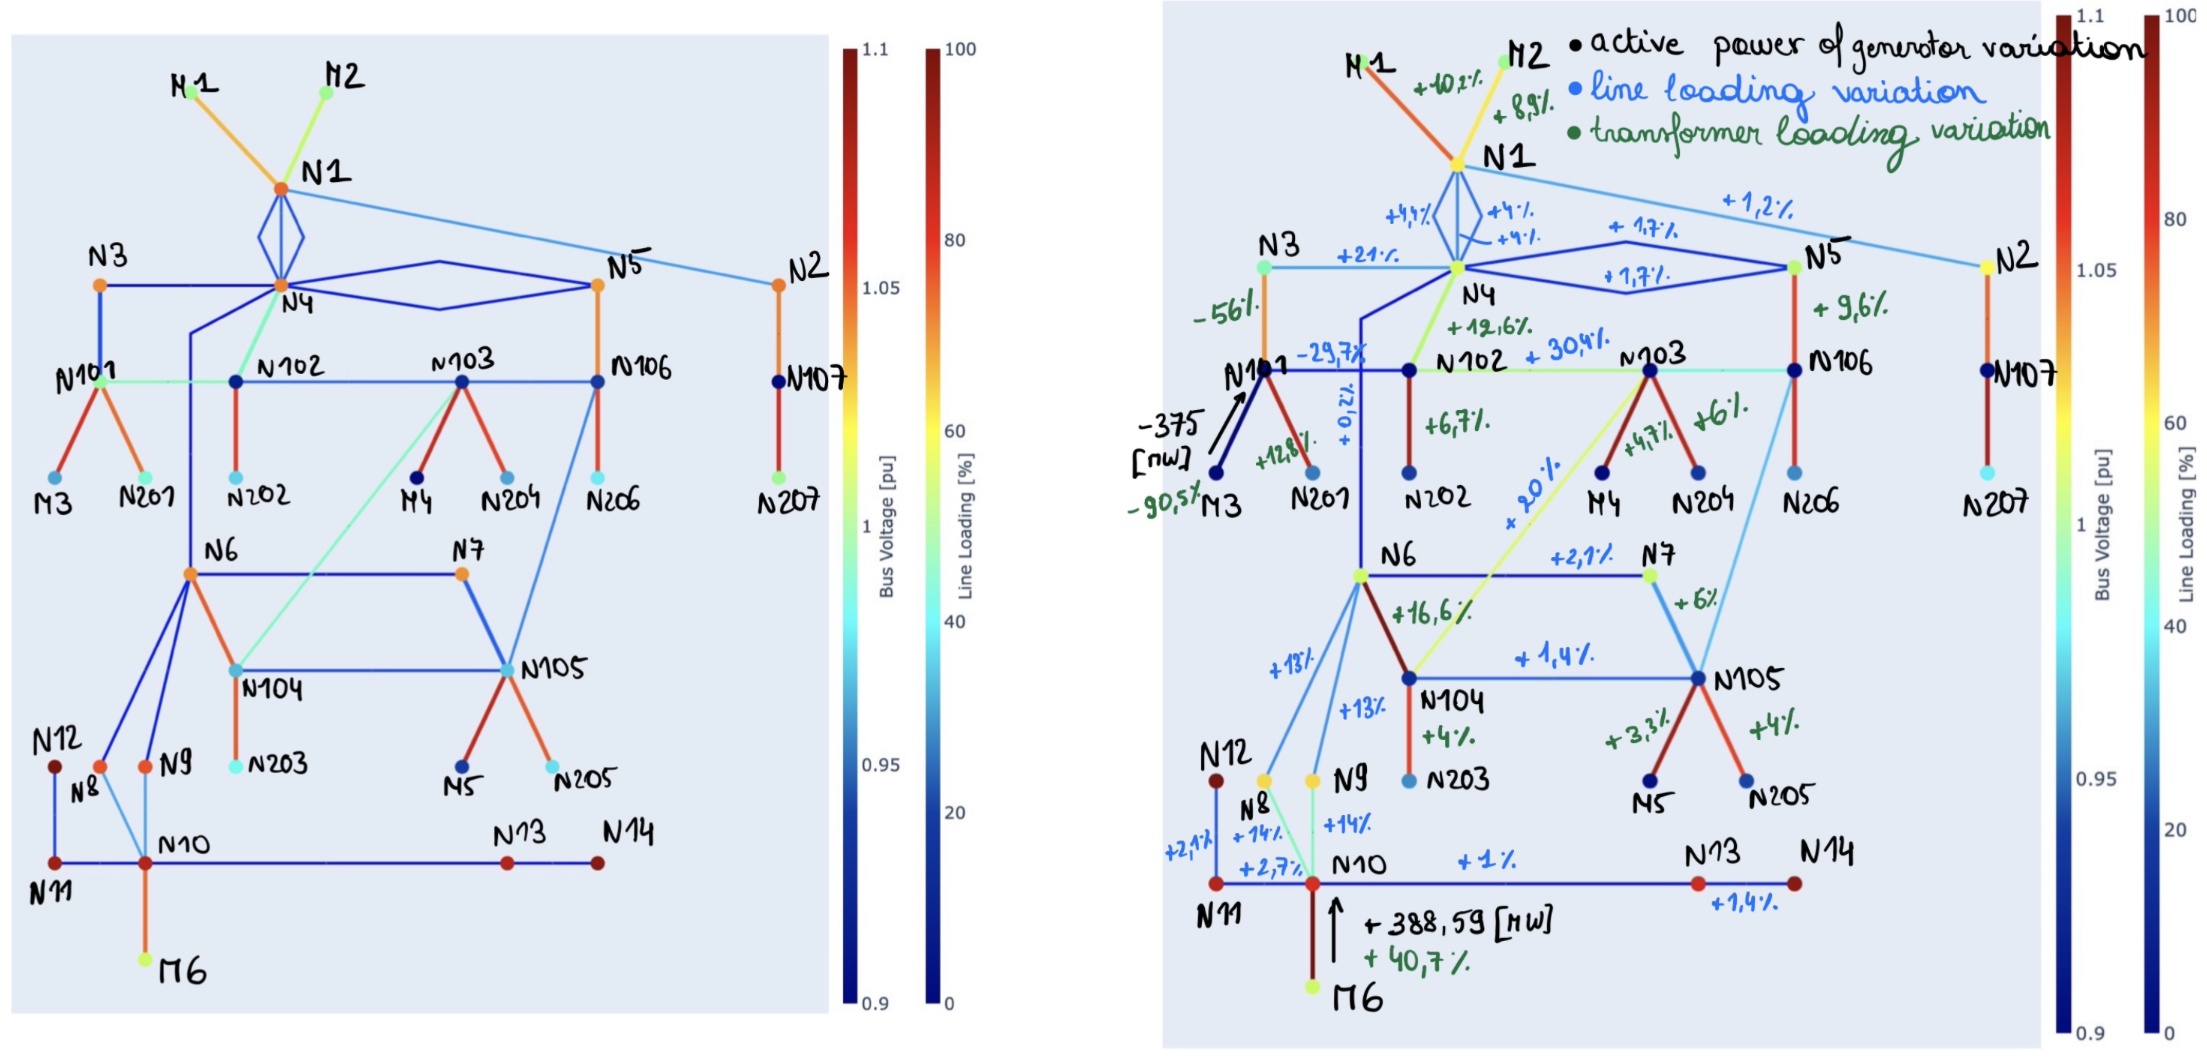 M1
M2
N1
N3
N5
N2
N4
N101
N102
N103
N106
N107
M3
N201
N202
M4
N204
N206
N207
N6
N7
N104
N105
N12
N8
N9
N203
M5
N205
N10
N13
N14
N11
M6
1.1
1.05
1
0.95
0.9
Bus Voltage [pu]
100
80
60
40
20
0
Line Loading [%]
• active power of generator variation
• line loading variation
• transformer loading variation
M1
+10,2%
M2
+8,9%
N1
+4,4%
+4%
+4%
+1,2%
N3
+21%
+1,7%
+1,7%
N5
N2
N4
-56%
+12,6%
+9,6%
N101
-29,7%
N102
+30,4%
N103
N106
N107
-375
[MW]
+0,2%
+12,8%
+6,7%
+4,7%
+6%
-90,5%
M3
N201
N202
M4
N204
N206
N207
+20%
N6
+2,1%
N7
+16,6%
+6%
+13%
+13%
+1,4%
N104
N105
+4%
+3,3%
+4%
N12
N8
N9
N203
M5
N205
+2,1%
+14%
+14%
+2,7%
N10
+1%
N13
N14
N11
+1,4%
+388,59 [MW]
+40,7%
M6
1.1
1.05
1
0.95
0.9
Bus Voltage [pu]
100
80
60
40
20
0
Line Loading [%]